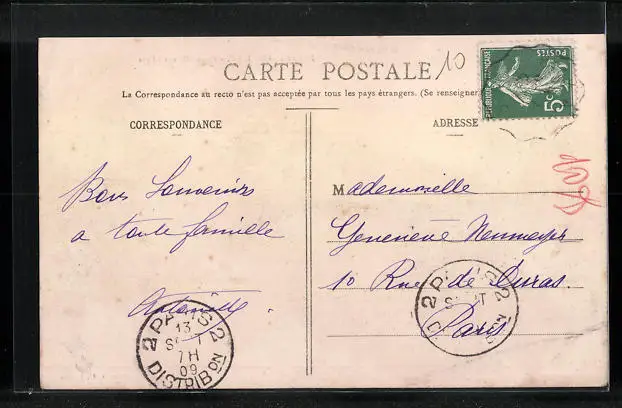 CARTE POSTALE
10
La Correspondance au recto n'est pas acceptée par tous les pays étrangers. (Se renseigner
POSTES
REPUBLIQUE FRANÇAISE
5c
CORRESPONDANCE
ADRESSE
Bons Souvenirs
a toute famille
Mademoiselle
Genevieve Neumeyer
10 Rue de Duras.
Paris
PARIS 2
13
7H
09
2 DISTRIBON
2 PARIS 2